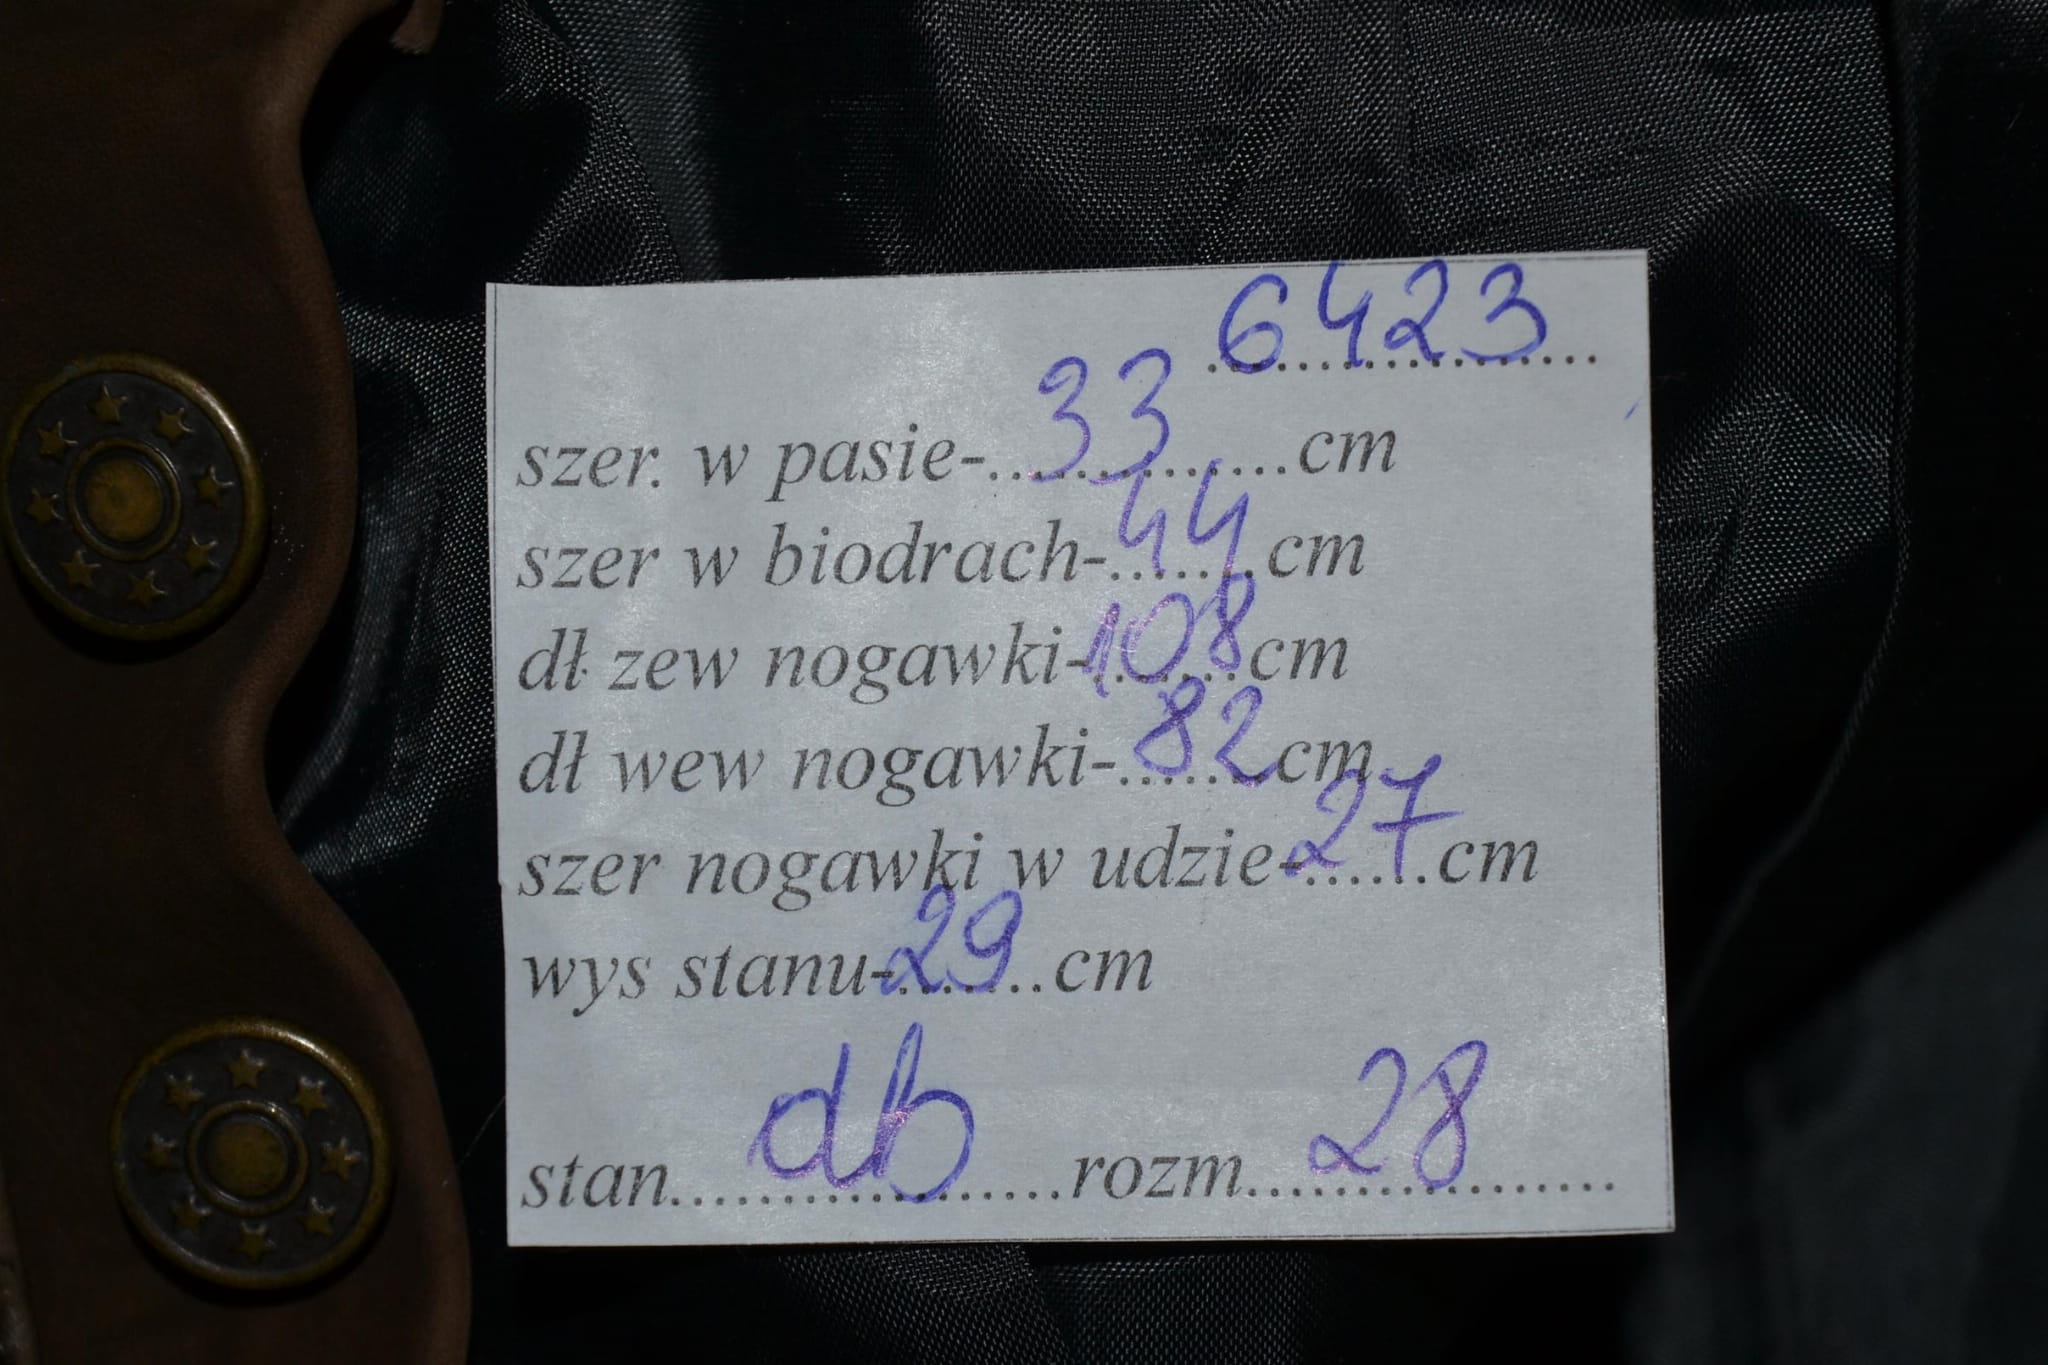 6423
szer. w pasie-33cm
szer w biodrach-44cm
dł zew nogawki-108cm
dł wew nogawki-82cm
szer nogawki w udzie-27cm
wys stanu-29cm
stan db rozm 28